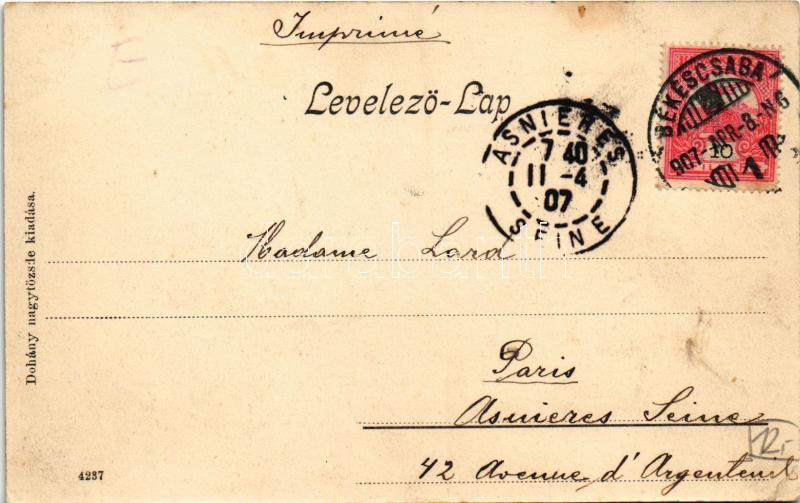 Imprimé
E
Levelező-Lap
BÉKÉSCSABA
907-APR-8.-N6
10
1
ASNIERES
7 40
11 -4
07
SEINE
Madame Lard
darabanth
Dohány nagytőzsde kiadása.
Paris
Asnieres Seine
42 Avenue d'Argenteuil
12,-
4237